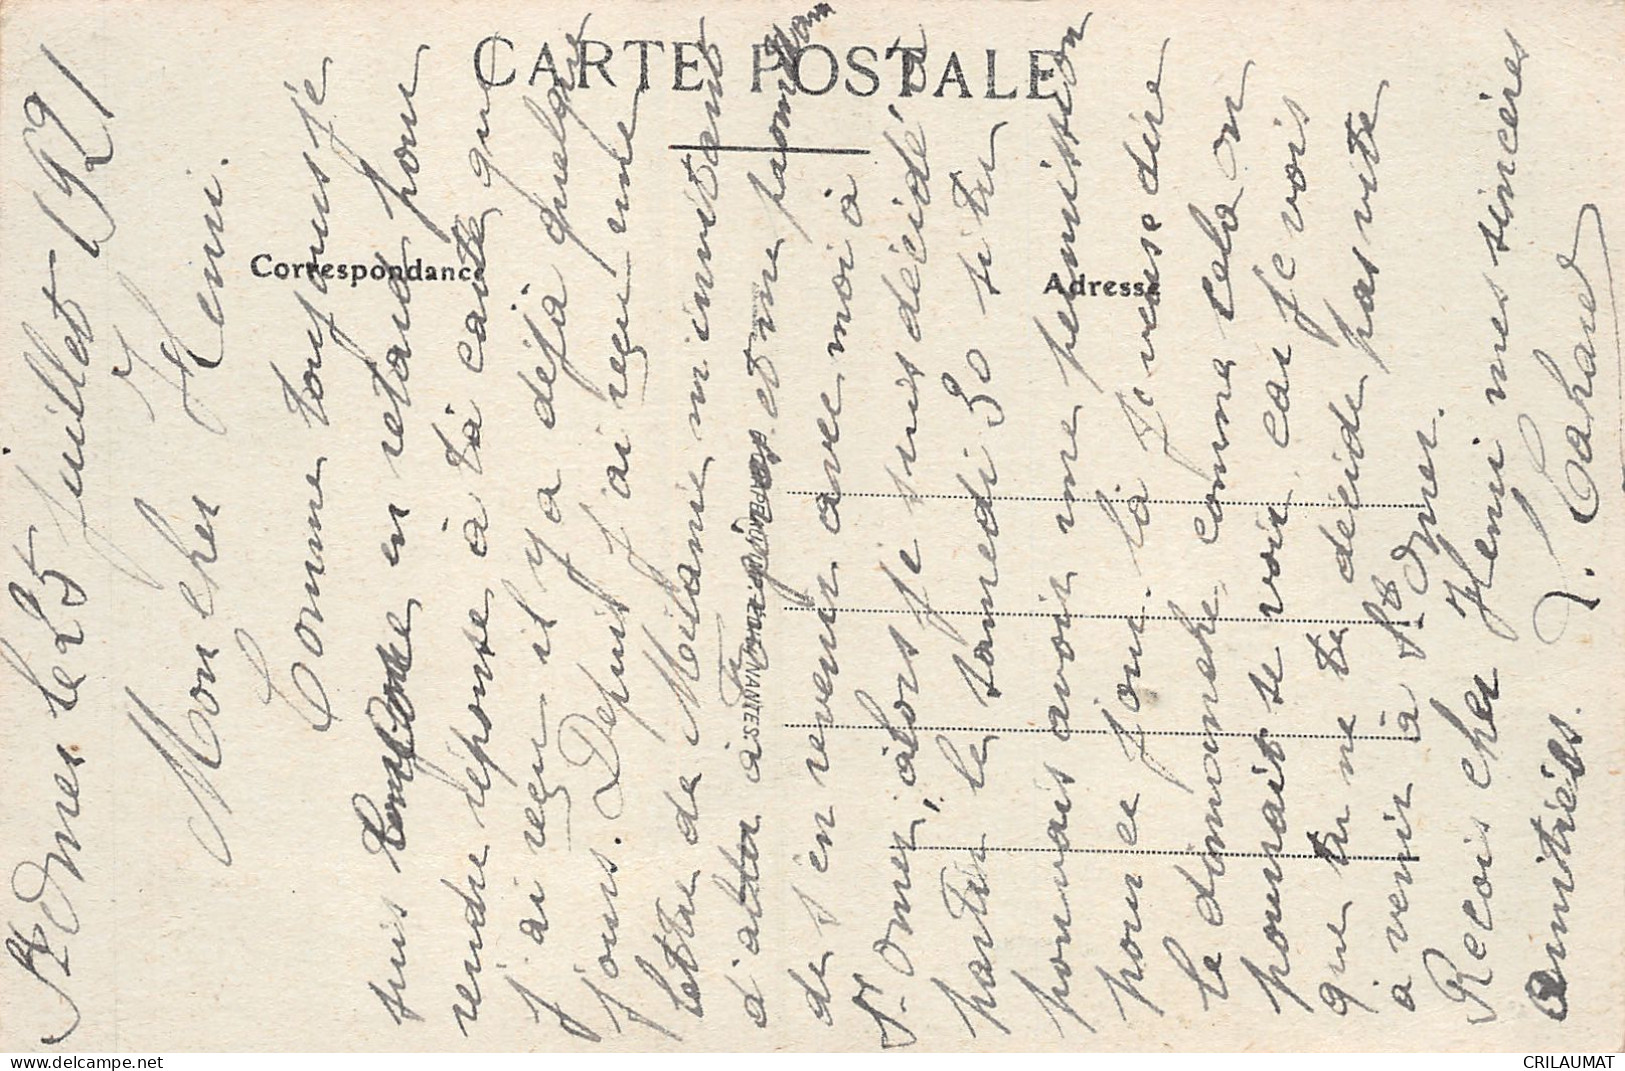 CARTE POSTALE
Correspondance
Adresse
St Omer le 25 juillet 1921
Mon cher Henri.
Comme toujours je
suis encore en retard pour
rendre réponse à ta carte que
j'ai reçu il y a déjà quelque
jours. Depuis j'ai reçu une
lettre de Mélanie m'invitant
d'aller à et me
de s'en revenir avec moi à
St. Omer, alors je suis décidé à
partir le samedi 30 si tu
pouvais avoir une permission
pour ce jour là je veux dire
le dimanche comme cela on
pourrait se voir car je vois
que tu ne te décide pas vite
à venir à St Omer.
Recois cher Henri mes sincères
Amitiés.
NANTES
CRILAUMAT